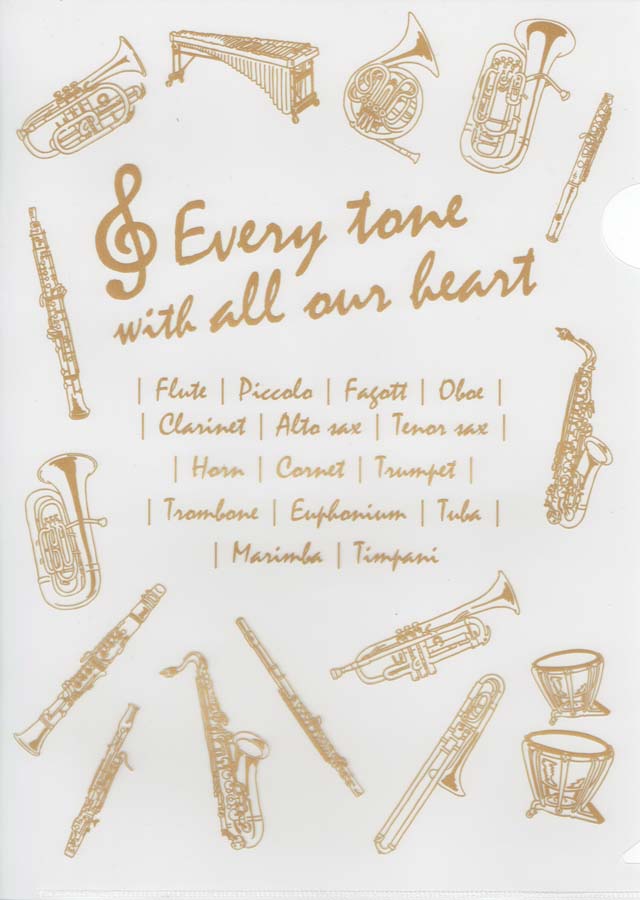 Every tone
with all our heart
| Flute | Piccolo | Fagott | Oboe |
| Clarinet | Alto sax | Tenor sax |
| Horn | Cornet | Trumpet |
| Trombone | Euphonium | Tuba |
| Marimba | Timpani